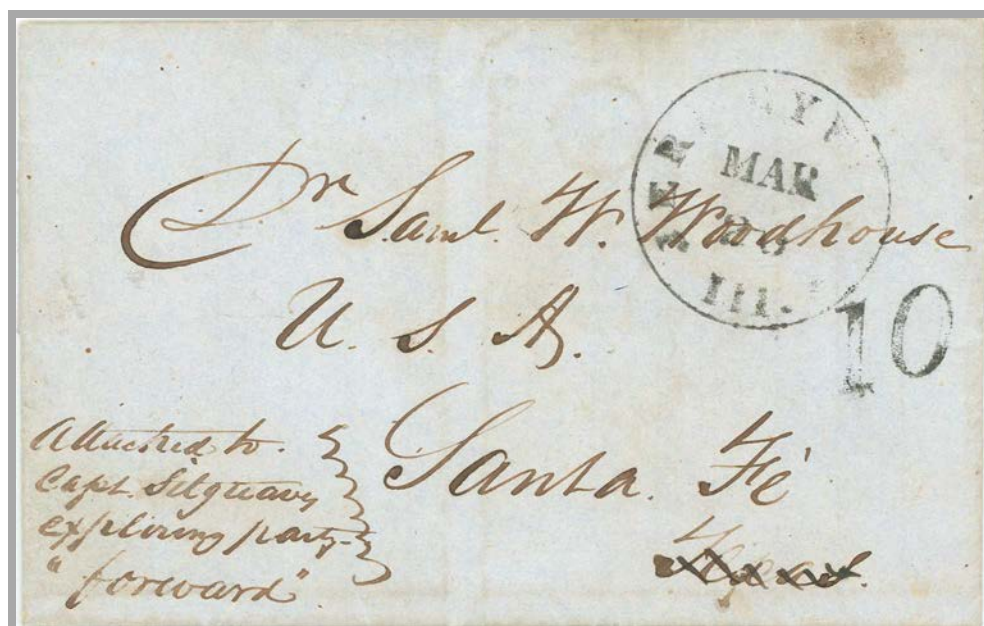 MAR
Ill.
10
Dr Saml. W. Woodhouse
U. S. A.
Santa. Fé
Texas.
Attached to.
Capt. Sitgreaves
exploring party-
"forward"